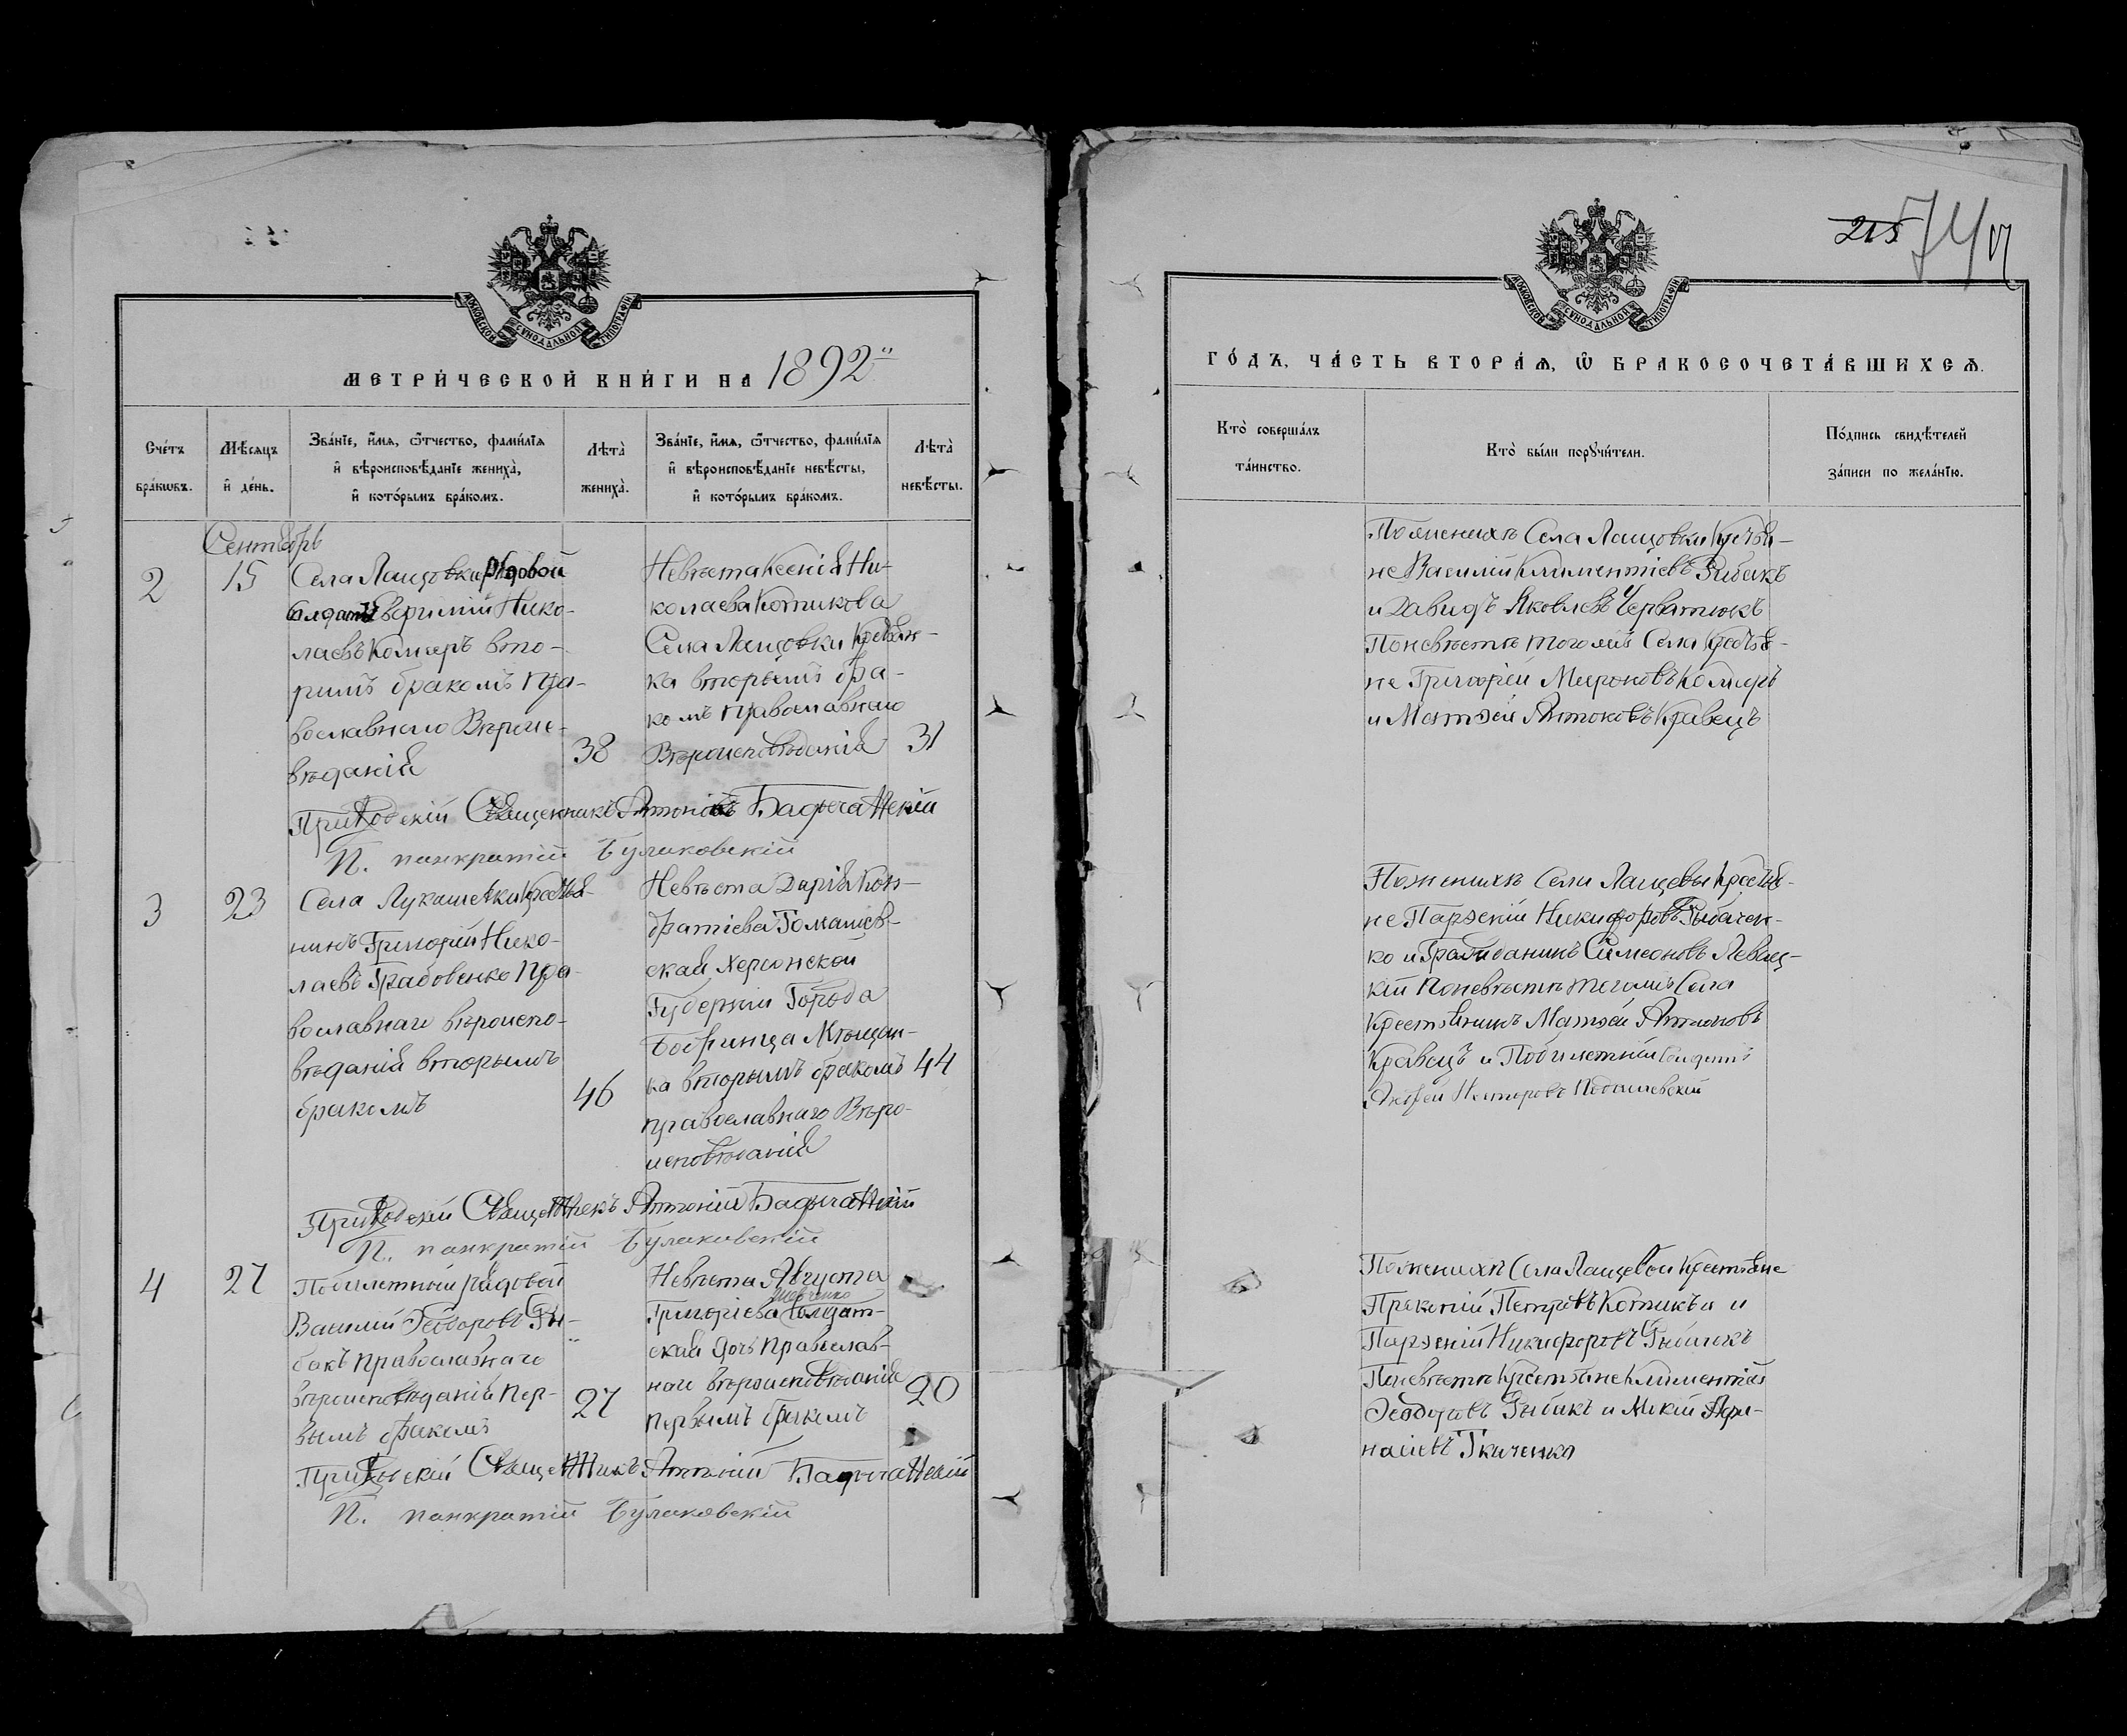 МОСКОВСКОЙ СѴНОДАЛЬНОЙ ТИПОГРАФІИ
МЕТРИ́ЧЕСКОЙ КНИ́ГИ НА 1892
Сче́тъ бра́кѡвъ.
Мѣ́сѧцъ и҆ де́нь.
Зва́нїе, и҆́мѧ, ѻ҆́тчество, фами́лїѧ
и҆ вѣроисповѣ́данїе жениха̀,
и҆ кото́рымъ бра́комъ.
Лѣта̀ жениха̀.
Зва́нїе, и҆́мѧ, ѻ҆́тчество, фами́лїѧ
и҆ вѣроисповѣ́данїе невѣ́сты,
и҆ кото́рымъ бра́комъ.
Лѣта̀ невѣ́сты.
Сентябрь
2
15
Села Лащовки Рядовой
Солдатъ Евфимій Нико-
лаевъ Комиеръ вто-
римъ бракомъ пра-
вославнаго Вѣроис-
вѣданія
38
Невѣста Ксенія Ни-
колаева Котикова
Села Лащовки Крестьян-
ка вторымъ бра-
комъ православнаго
Вѣроисповѣданія
31
Приходскій Священникъ Антоній
П. панкратій Булаковскій
3
23
Села Лукашевки Крестья-
нинъ Григорій Нико-
лаевъ Грабовенко пра-
вославнаго вѣроиспо-
вѣданія вторымъ
бракомъ
46
Невѣста Дарія Кон-
дратіева Томашев-
ская, Херсонской
Губерніи Города
Бобринца Мѣщан-
ка вторымъ бракомъ
православнаго Вѣро-
исповѣданія
44
Приходскій Священникъ Антоній
П. панкратій Булаковскій
4
27
Побилетный рядовой
Василий Феодоровъ Ры-
бакъ православнаго
вѣроисповѣданія пер-
вымъ бракомъ
27
Невѣста Августа
Шевченко
Григоріева Солдат-
ская дочь Православ-
наго вѣроисповѣданія
первымъ бракомъ
20
Приходскій Священникъ Антоній
П. панкратій Булаковскій
215 74
МОСКОВСКОЙ СѴНОДАЛЬНОЙ ТИПОГРАФІИ
ГО́ДЪ, ЧА́СТЬ ВТОРА́Ѧ, Ѽ БРАКОСОЧЕТА́ВШИХСѦ.
Кто̀ соверша́лъ
та́инство.
Кто̀ бы́ли порꙋчи́тели.
По́дпись свидѣ́телей
за́писи по жела́нїю.
По женихѣ Села Лащовки Крестья-
не Василій Климентіевъ Рибакъ
и Давидъ Яковлевъ Черватюкъ
По невѣстѣ того жъ Села Крестья-
не Григорій Мироновъ
и Матѳей Антоновъ Кравецъ
По женихѣ Села Лащевки Крестья-
не Парѳеній Никифоровъ Рыбачен-
ко и Гражданинъ Симеоновъ Левиц-
кій По невѣстѣ того жъ Села
Крестьянинъ Матѳей Антоновъ
Кравецъ и Побилетный Солдатъ
Андрей Несторовъ
По женихѣ Села Лащевки Крестьяне
Прокопій Петровъ Котикъ и
Парѳеній Никифоровъ Рыбакъ
По невѣстѣ Крестьяне Климентій
Феодоровъ Рыбакъ и Мокій Афа-
насіевъ Ткаченко